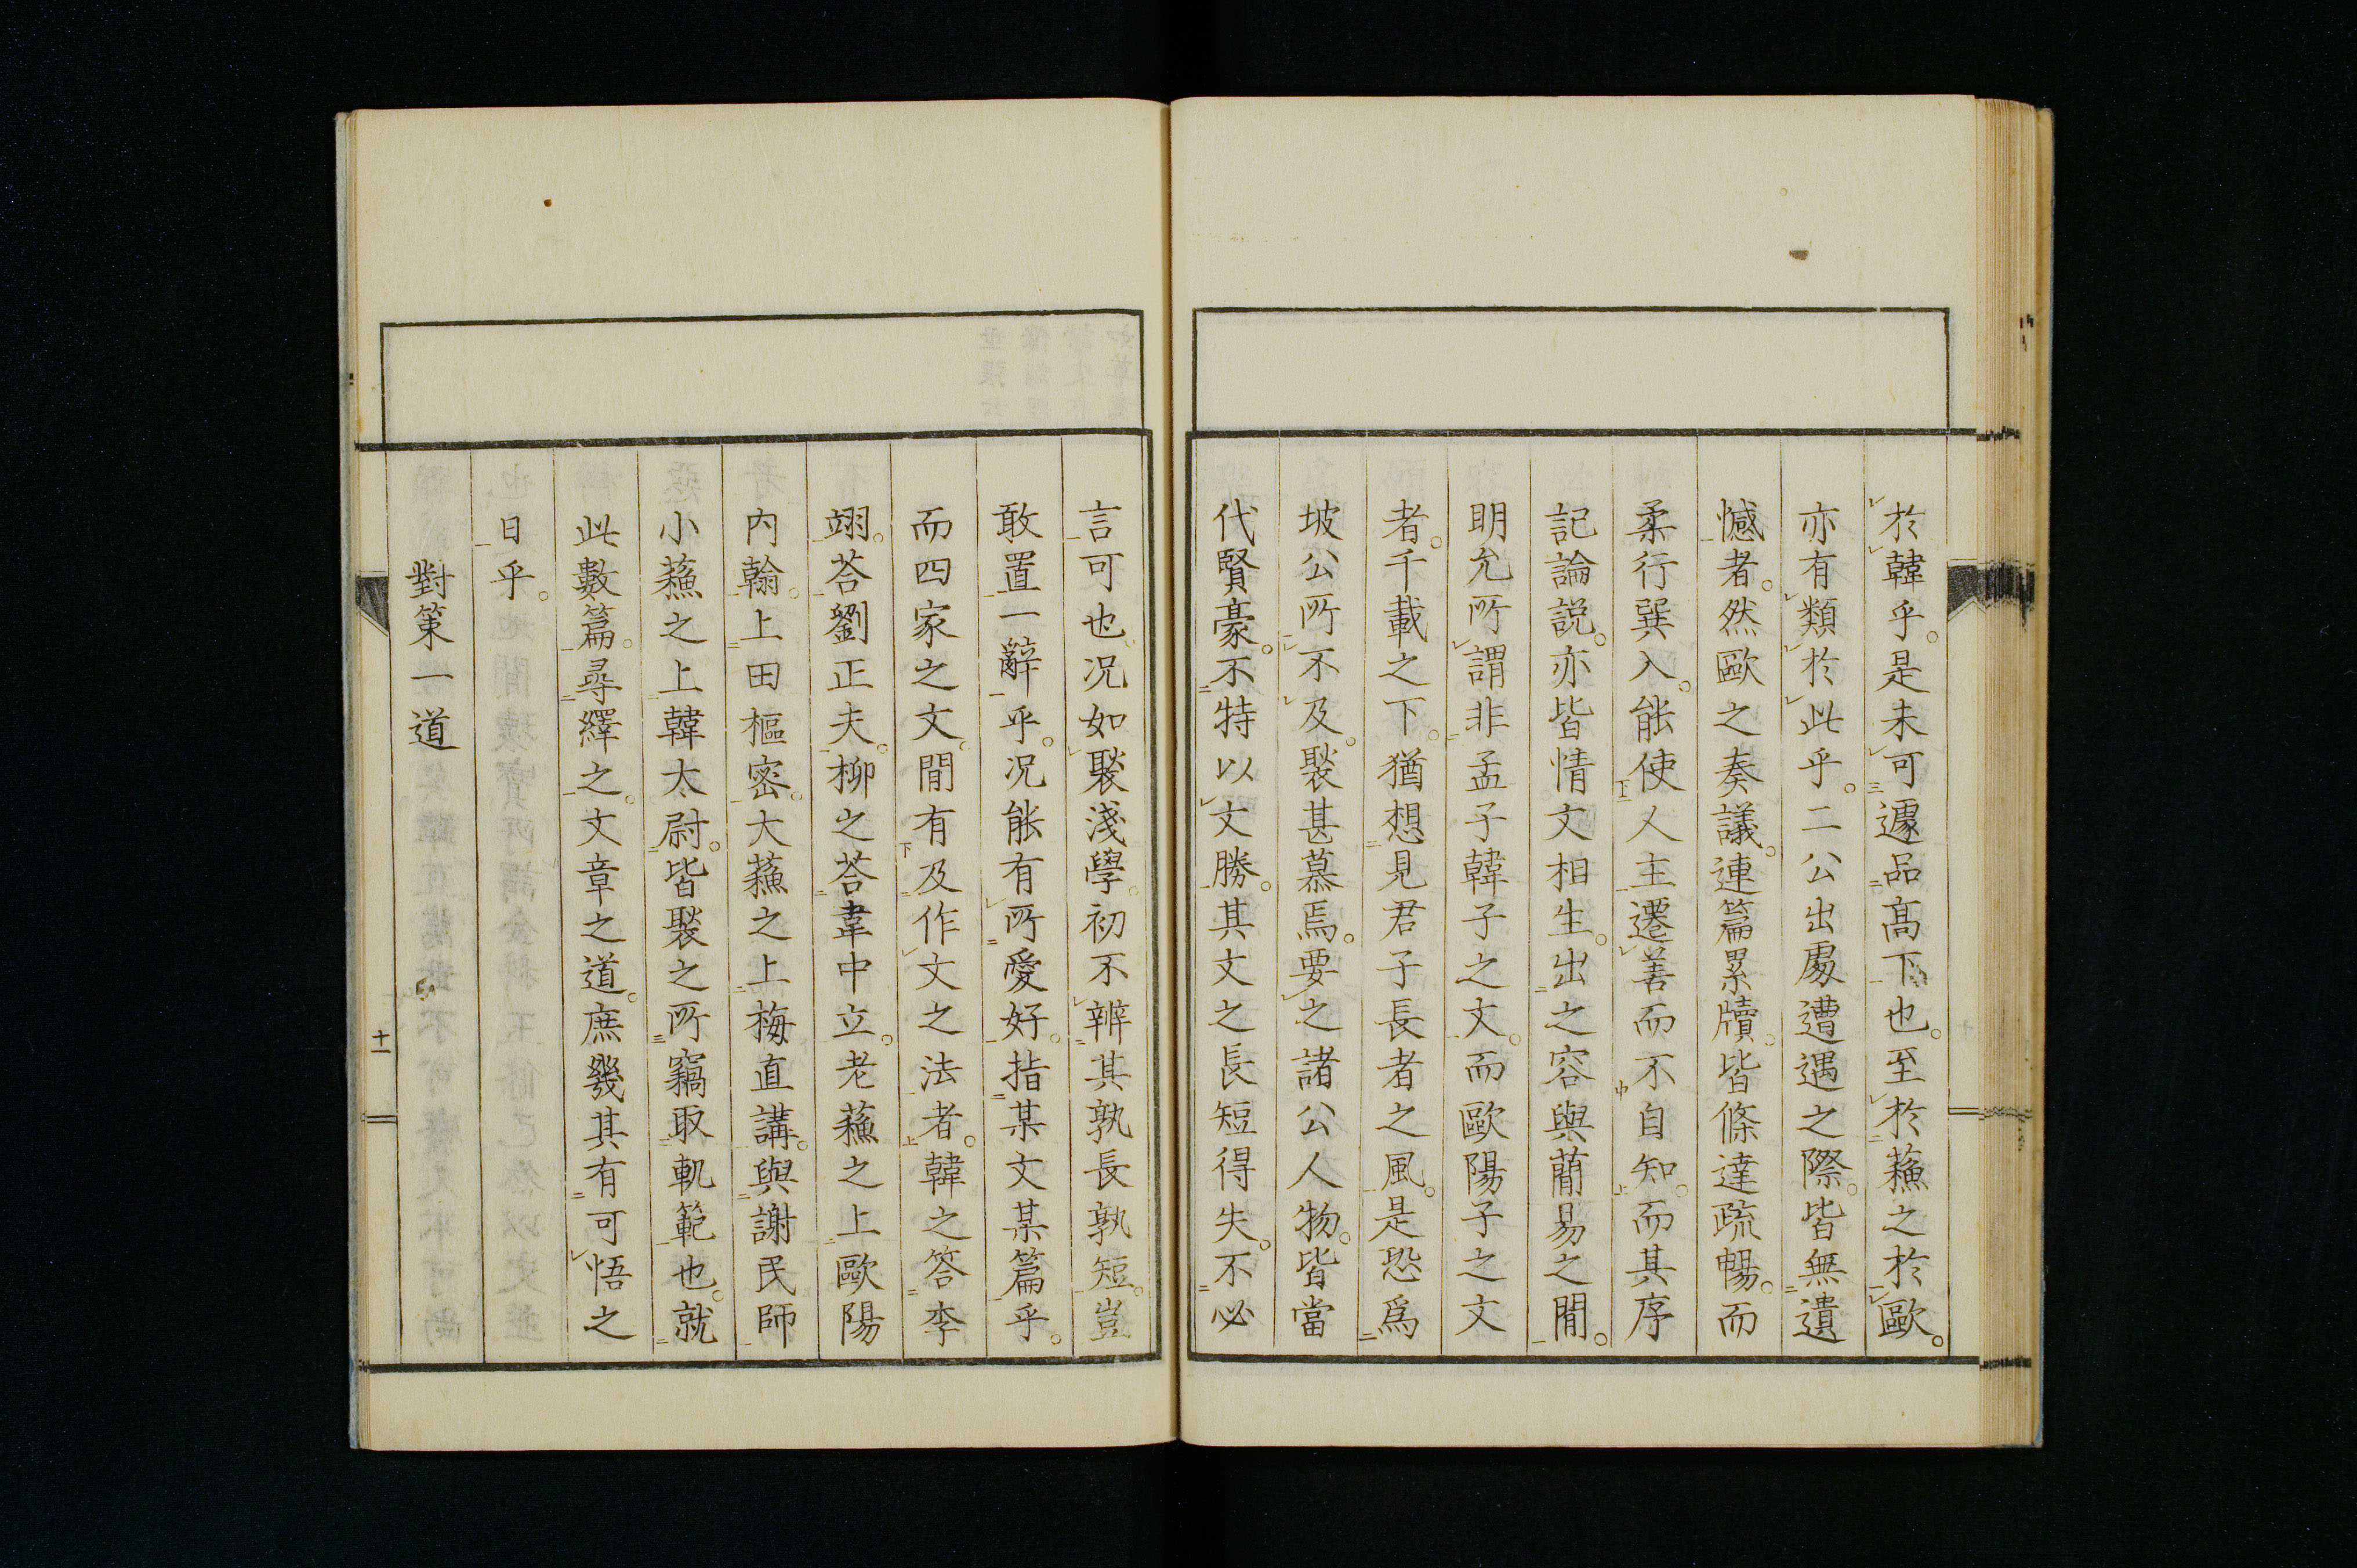 於韓乎。是未可遽品高下也。至於蘓之於歐。
亦有類於此乎。二公出處遭遇之際。皆無遺
憾者。然歐之奏議。連篇累牘。皆條達疏暢。而
柔行巽入。能使人主遷善而不自知。而其序
記論説。亦皆情文相生。出之容與蕑易之閒。
明允所謂非孟子韓子之文。而歐陽子之文
者。千載之下。猶想見君子長者之風。是恐爲
坡公所不及。褧甚慕焉。要之諸公人物。皆當
代賢豪。不特以文勝。其文之長短得失。不必
言可也。况如褧淺學。初不辨其孰長孰短。豈
敢置一辭乎。况能有所愛好。指某文某篇乎。
而四家之文。閒有及作文之法者。韓之答李
翊。荅劉正夫。柳之荅韋中立。老蘓之上歐陽
内翰。上田樞密。大蘓之上梅直講。與謝民師
小蘓之上韓太尉。皆褧之所竊取軌範也。就
此數篇。尋繹之。文章之道。庶幾其有可悟之
日乎。
對策一道
十一